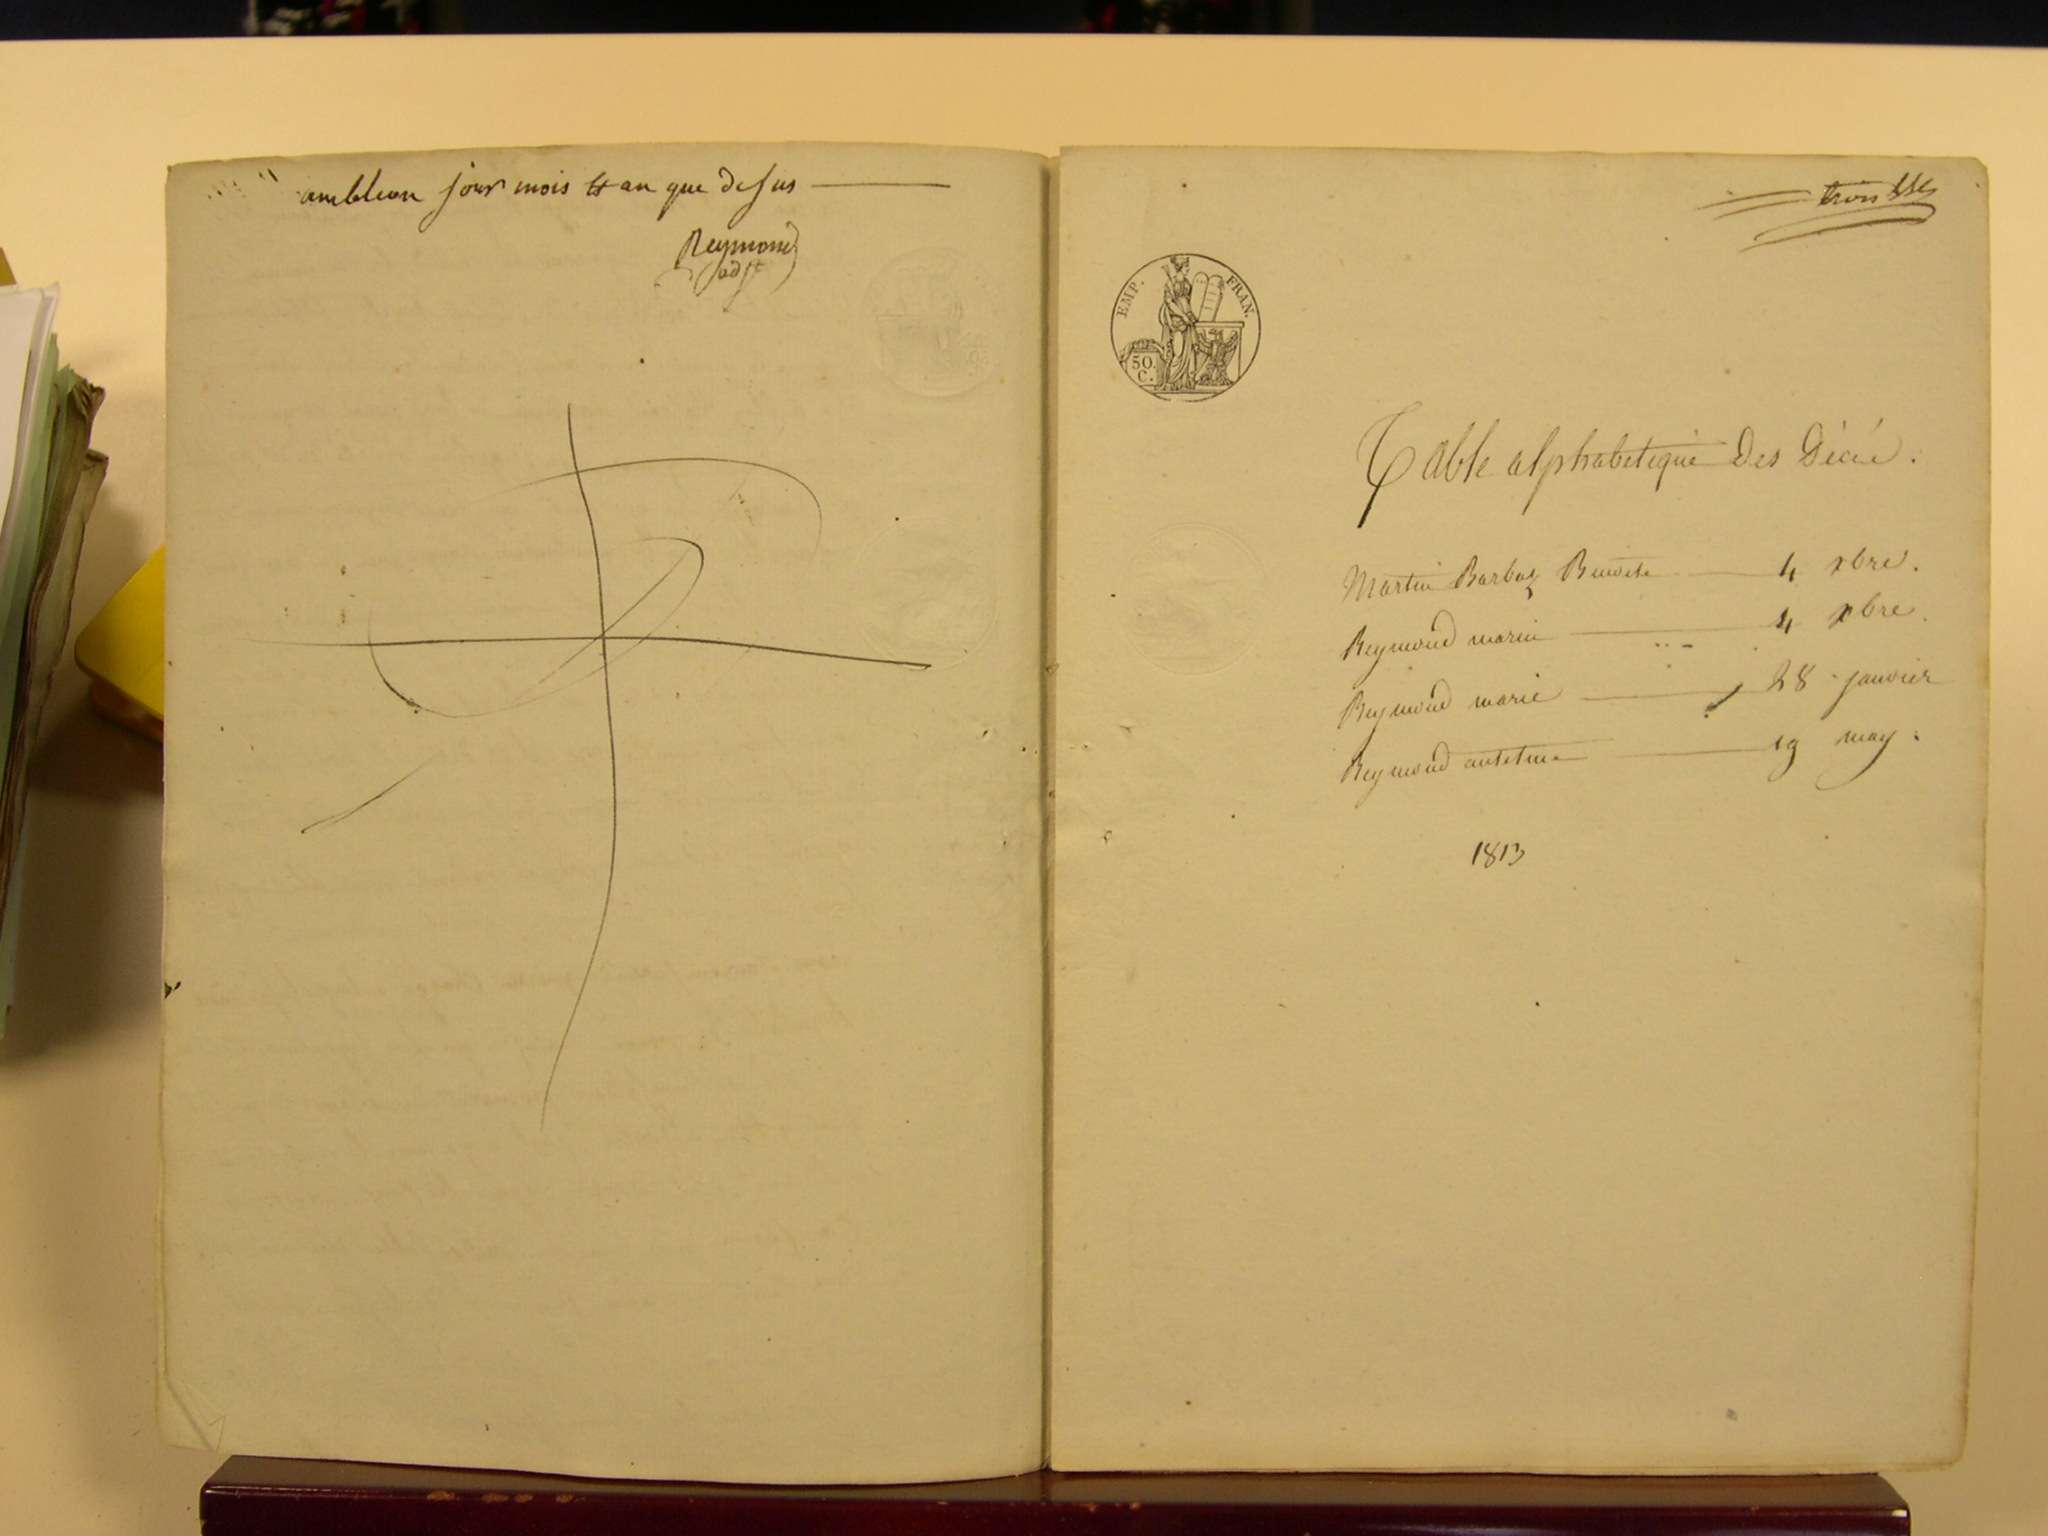 ambleon jour mois et an que desus
Reymond
adjt
trois
EMP. FRAN.
50.
C.
Table alphabetique des Décé.
Martin Barbaz Benoite 4 xbre.
Reymond marie 4 xbre.
Reymond marie 28 janvier
Reymond antelme 19 may.
1813